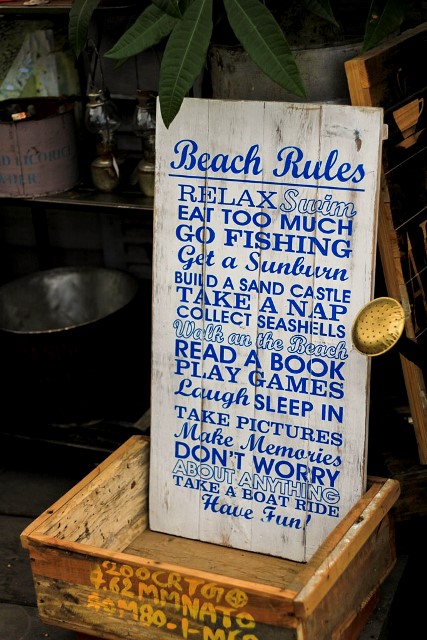 Beach Rules
RELAX Swim
EAT TOO MUCH
GO FISHING
Get a Sunburn
BUILD A SAND CASTLE
TAKE A NAP
COLLECT SEASHELLS
Walk on the Beach
READ A BOOK
PLAY GAMES
Laugh SLEEP IN
TAKE PICTURES
Make Memories
DON'T WORRY
ABOUT ANYTHING
TAKE A BOAT RIDE
Have Fun!
7.62 MMNATO